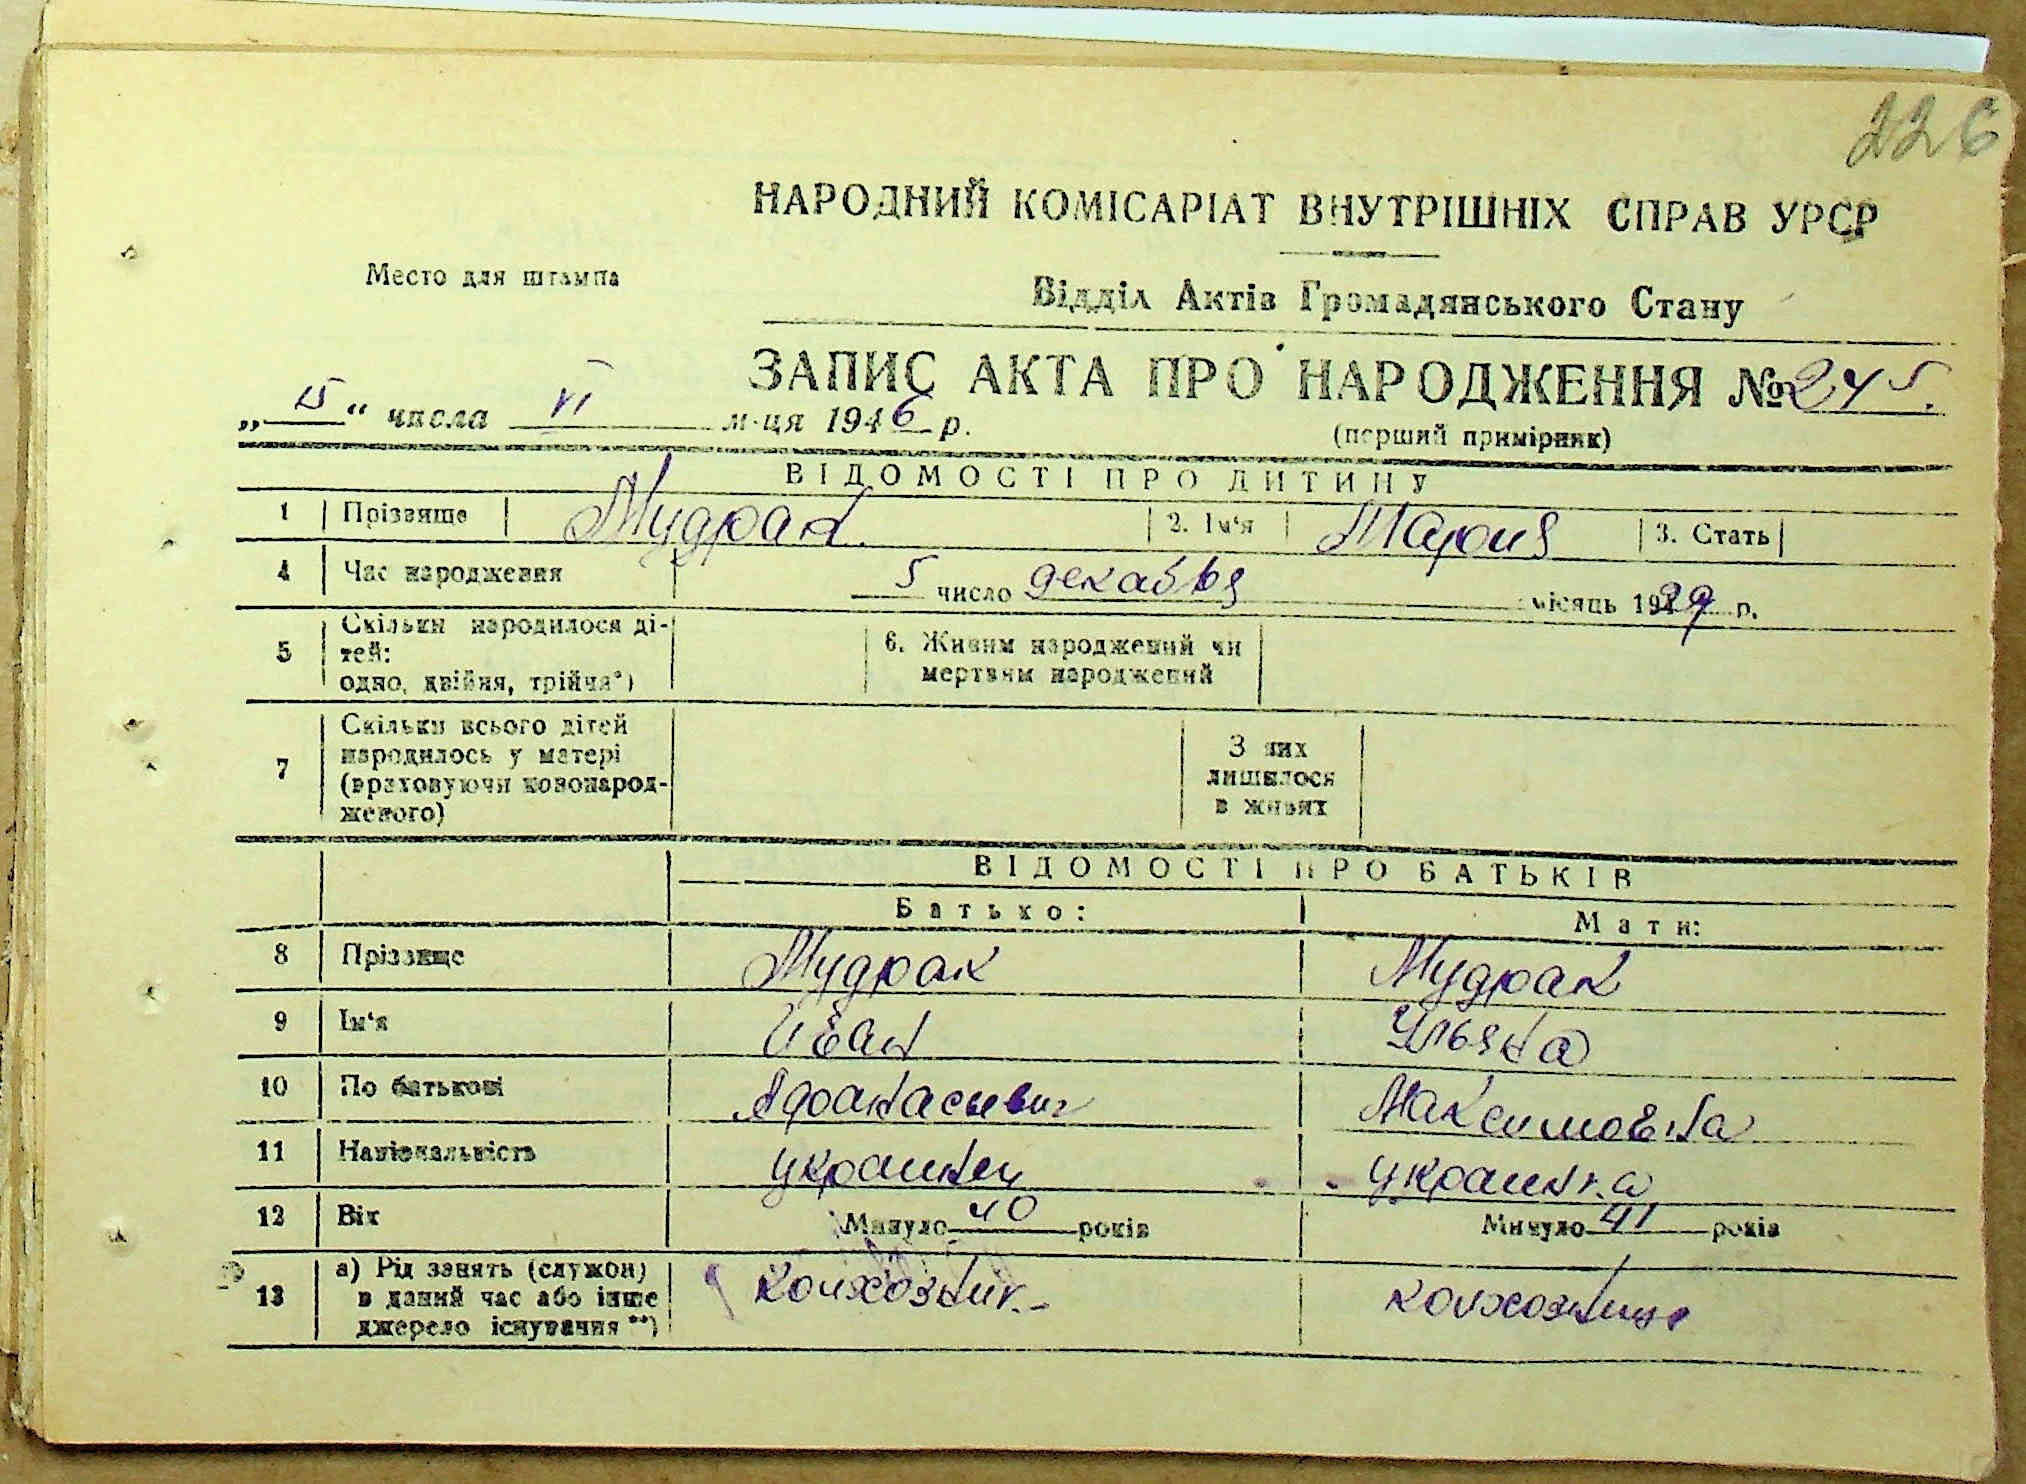 226
НАРОДНИЙ КОМІСАРІАТ ВНУТРІШНІХ СПРАВ УРСР
Место для штампа
Відділ Актів Громадянського Стану
ЗАПИС АКТА ПРО НАРОДЖЕННЯ № 245.
„15“ числа VI м-ця 1946 р.
(перший примірник)
ВІДОМОСТІ ПРО ДИТИНУ
1 Прізвище Мудрак. 2. Ім‘я Мария 3. Стать
4 Час народження 5 число декабря місяць 1939 р.
5 Скільки народилося дітей: одно, двійня, трійня*) 6. Живим народжений чи мертвим народжений
7 Скільки всього дітей народилось у матері (враховуючи новонародженого) З них лишилося в живих
ВІДОМОСТІ ПРО БАТЬКІВ
Батько: Мати:
8 Прізвище Мудрак Мудрак
9 Ім‘я Иван Ульяна
10 По батькові Афанасьевич Максимовна
11 Національність украинец украинка
12 Вік Минуло 40 років Минуло 41 років
13 а) Рід занять (служби) в даний час або інше джерело існування **) колхозник.- колхозница